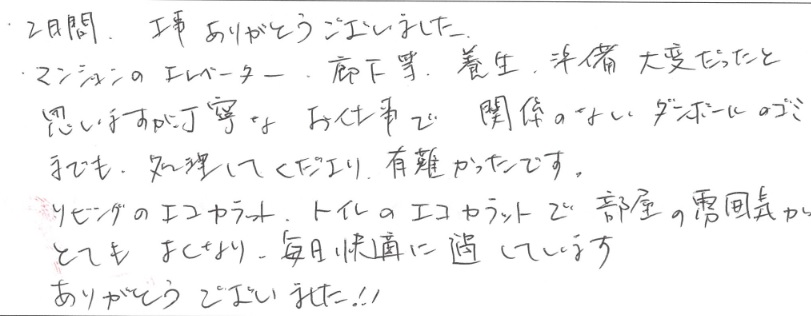 ・2日間、工事ありがとうございました。
・マンションのエレベーター、廊下等、養生、準備大変だったと
思いますが、丁寧なお仕事で関係のないダンボールのゴミ
までも、処理してくださり、有難かったです。
リビングのエコカラット、トイレのエコカラットで部屋の雰囲気が
とてもよくなり、毎日快適に過しています
ありがとうございました!!